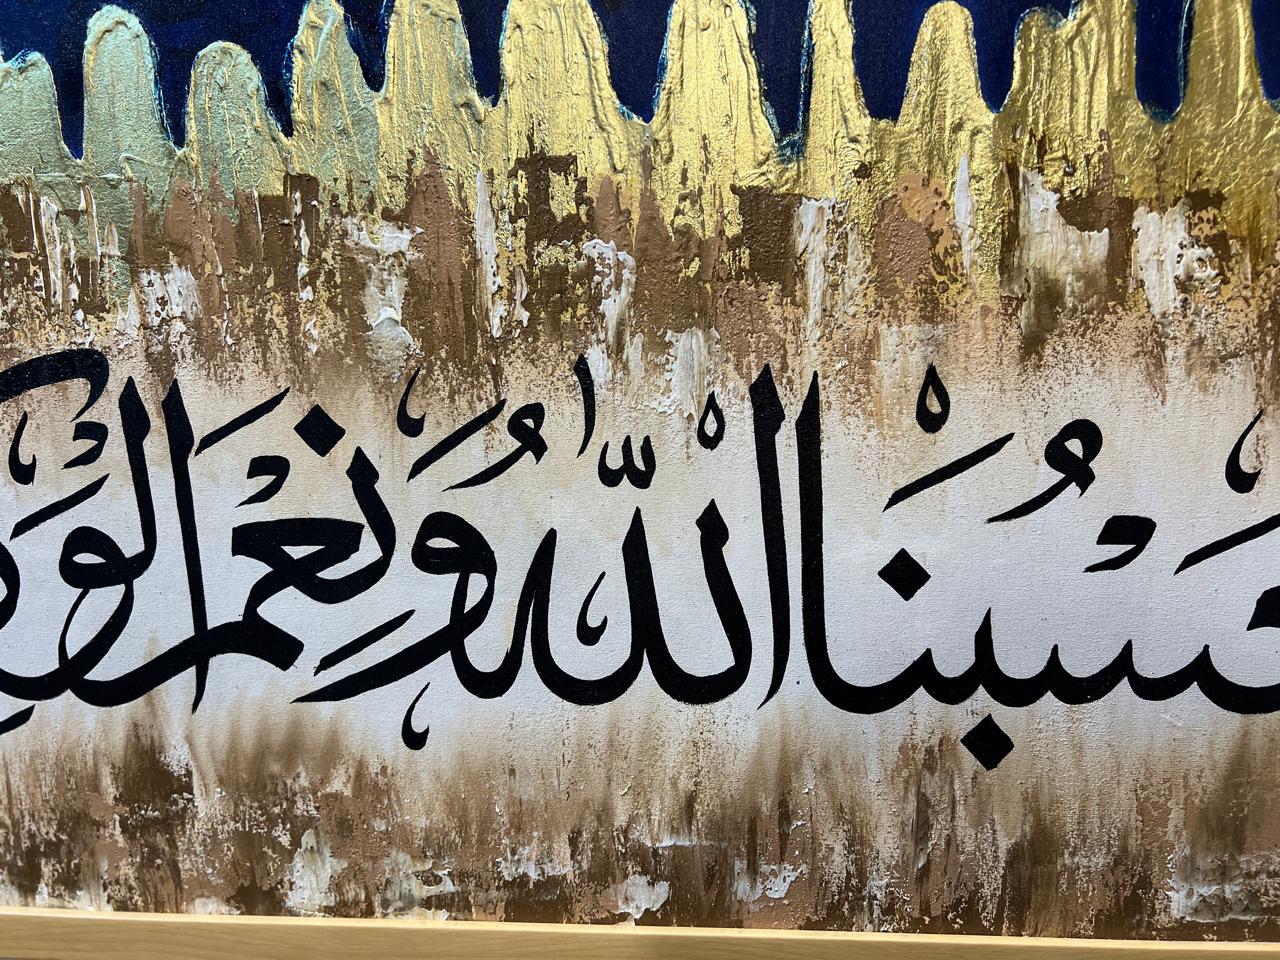 حَسْبُنَا اللّٰهُ وَنِعْمَ الْوَك